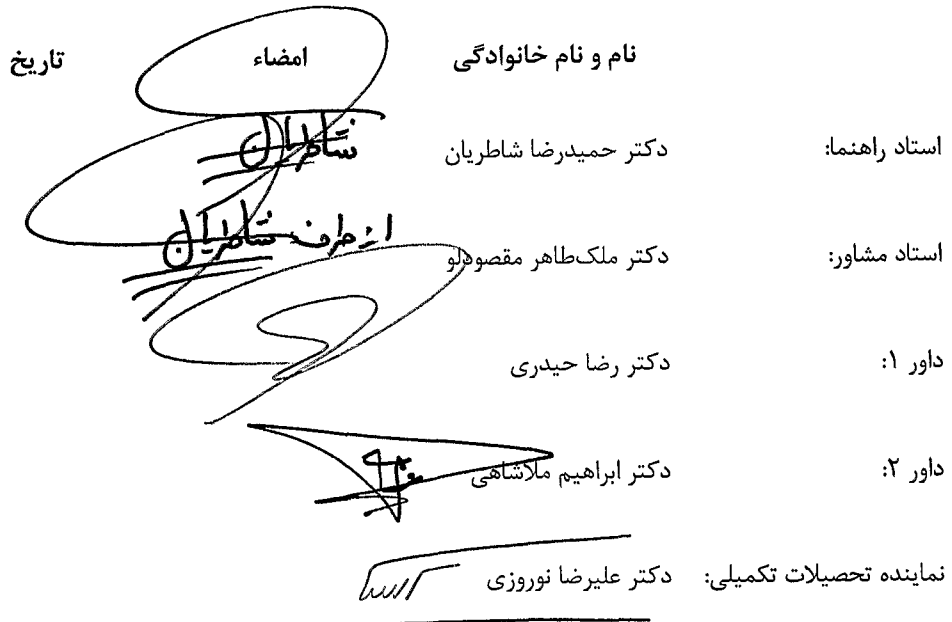 نام و نام خانوادگی امضاء تاریخ
استاد راهنما: دکتر حمیدرضا شاطریان شاطریان
استاد مشاور: دکتر ملک‌طاهر مقصودلو از طرف شاطریان
داور ۱: دکتر رضا حیدری
داور ۲: دکتر ابراهیم ملاشاهی
نماینده تحصیلات تکمیلی: دکتر علیرضا نوروزی